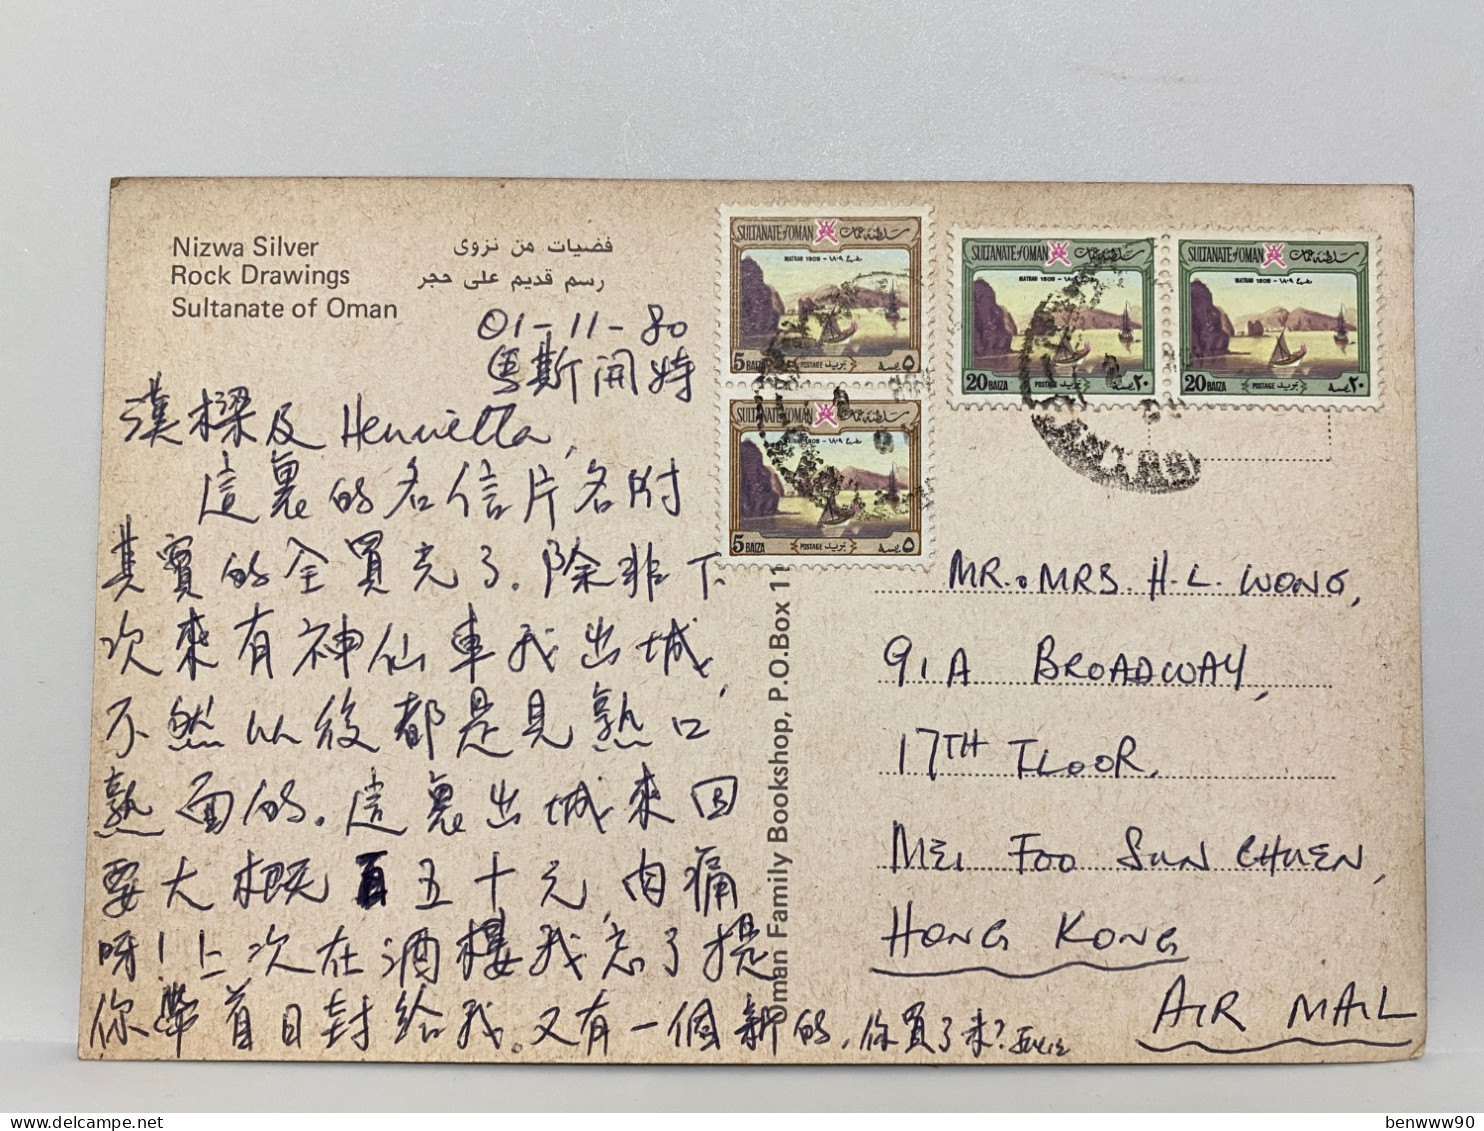 Nizwa Silver
Rock Drawings
Sultanate of Oman
فضيات من نزوى
رسم قديم على حجر
01-11-80
馬斯開特
漢樑及 Henrietta,
這裏的名信片名附
其實的全買完了.除非下
次來有神仙車我出城,
不然以後都是見熟口
熟面的.這裏出城來回
要大概 五十元,肉痛
呀!上次在酒樓我忘了提
你帶首日封給我.又有一個新的,你買了未?
SULTANATE of OMAN سلطنة عمان
MATRAH 1809 - مطرح ١٨٠٩
5 BAIZA POSTAGE بريد ٥ بيسة
SULTANATE of OMAN سلطنة عمان
MATRAH 1809 - مطرح ١٨٠٩
5 BAIZA POSTAGE بريد ٥ بيسة
SULTANATE of OMAN سلطنة عمان
MATRAH 1809 - مطرح ١٨٠٩
20 BAIZA POSTAGE بريد ٢٠ بيسة
SULTANATE of OMAN سلطنة عمان
MATRAH 1809 - مطرح ١٨٠٩
20 BAIZA POSTAGE بريد ٢٠ بيسة
Oman Family Bookshop, P.O.Box 11
MR. & MRS. H.L. WONG,
91A BROADWAY,
17TH FLOOR,
MEI FOO SUN CHUEN,
HONG KONG
AIR MAIL
benwww90